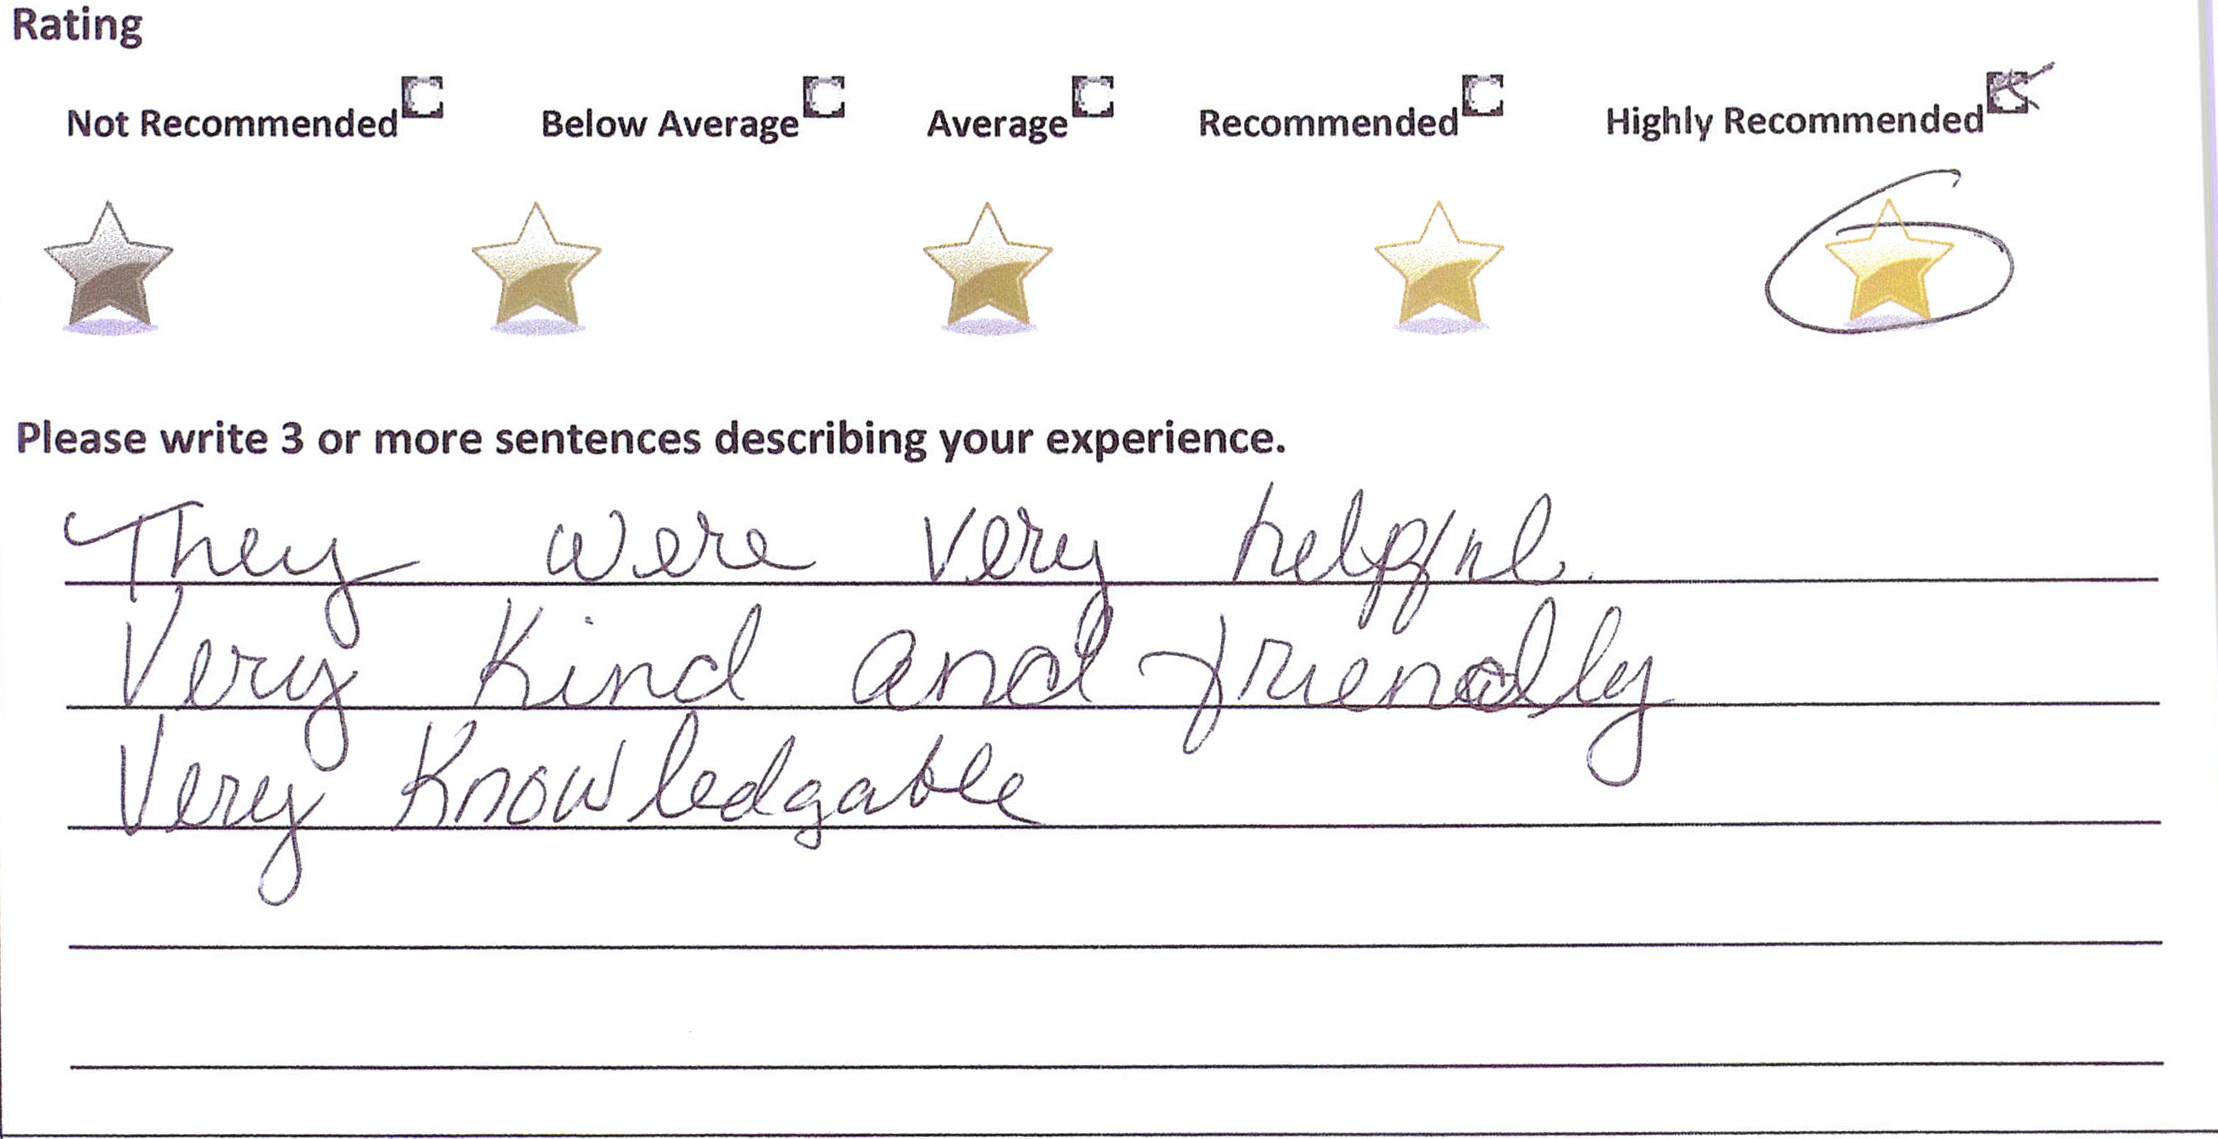 Rating
Not Recommended Below Average Average Recommended Highly Recommended
Please write 3 or more sentences describing your experience.
They were very helpful.
Very Kind and friendly
Very Knowledgable